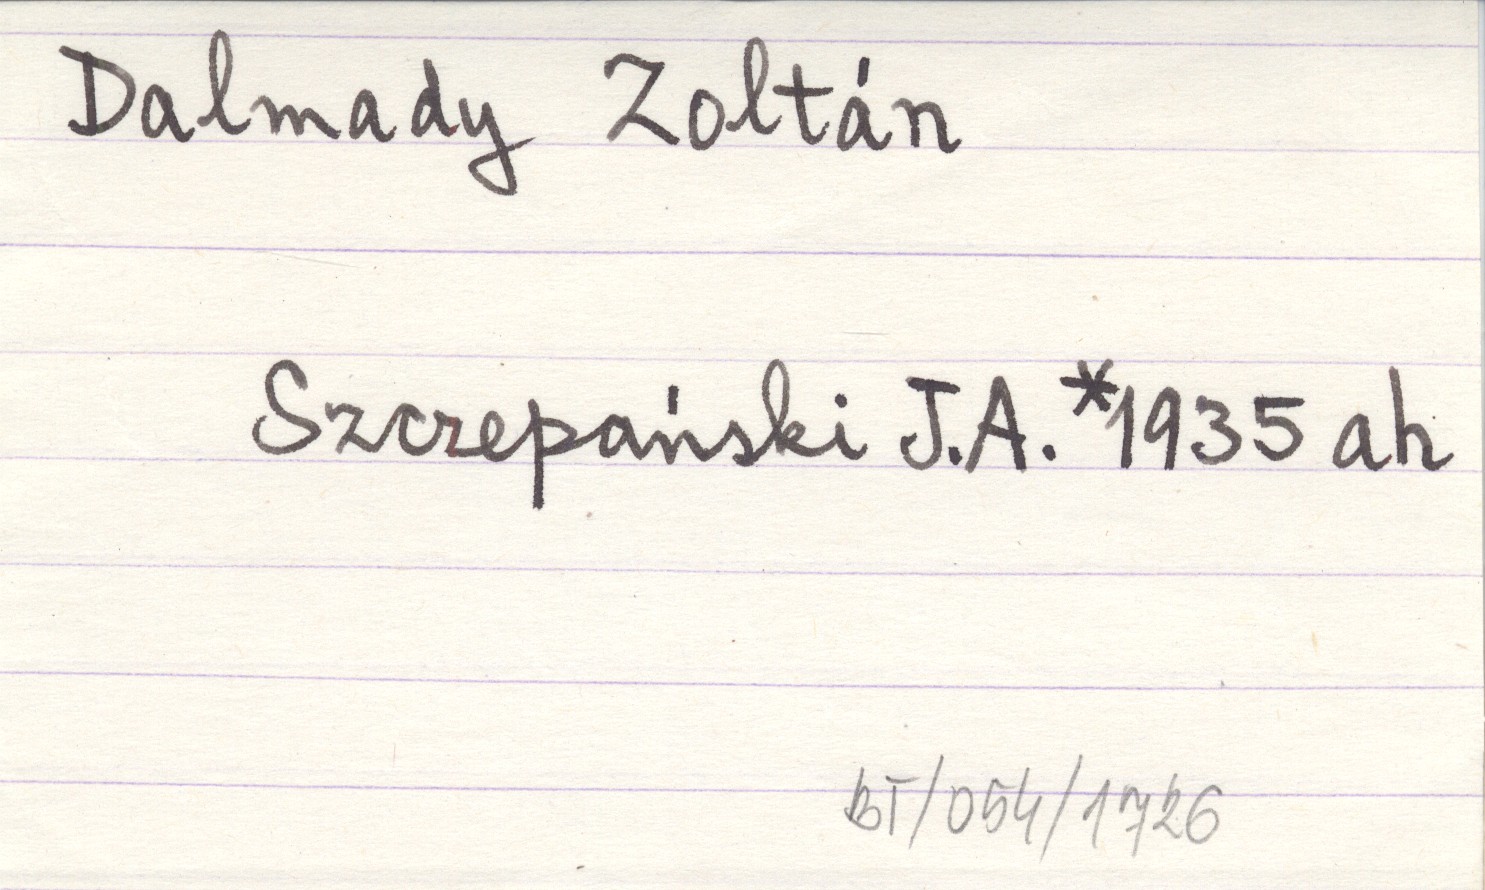 Dalmady Zoltán
Szczepański J.A.*1935 ah
BT/054/1726